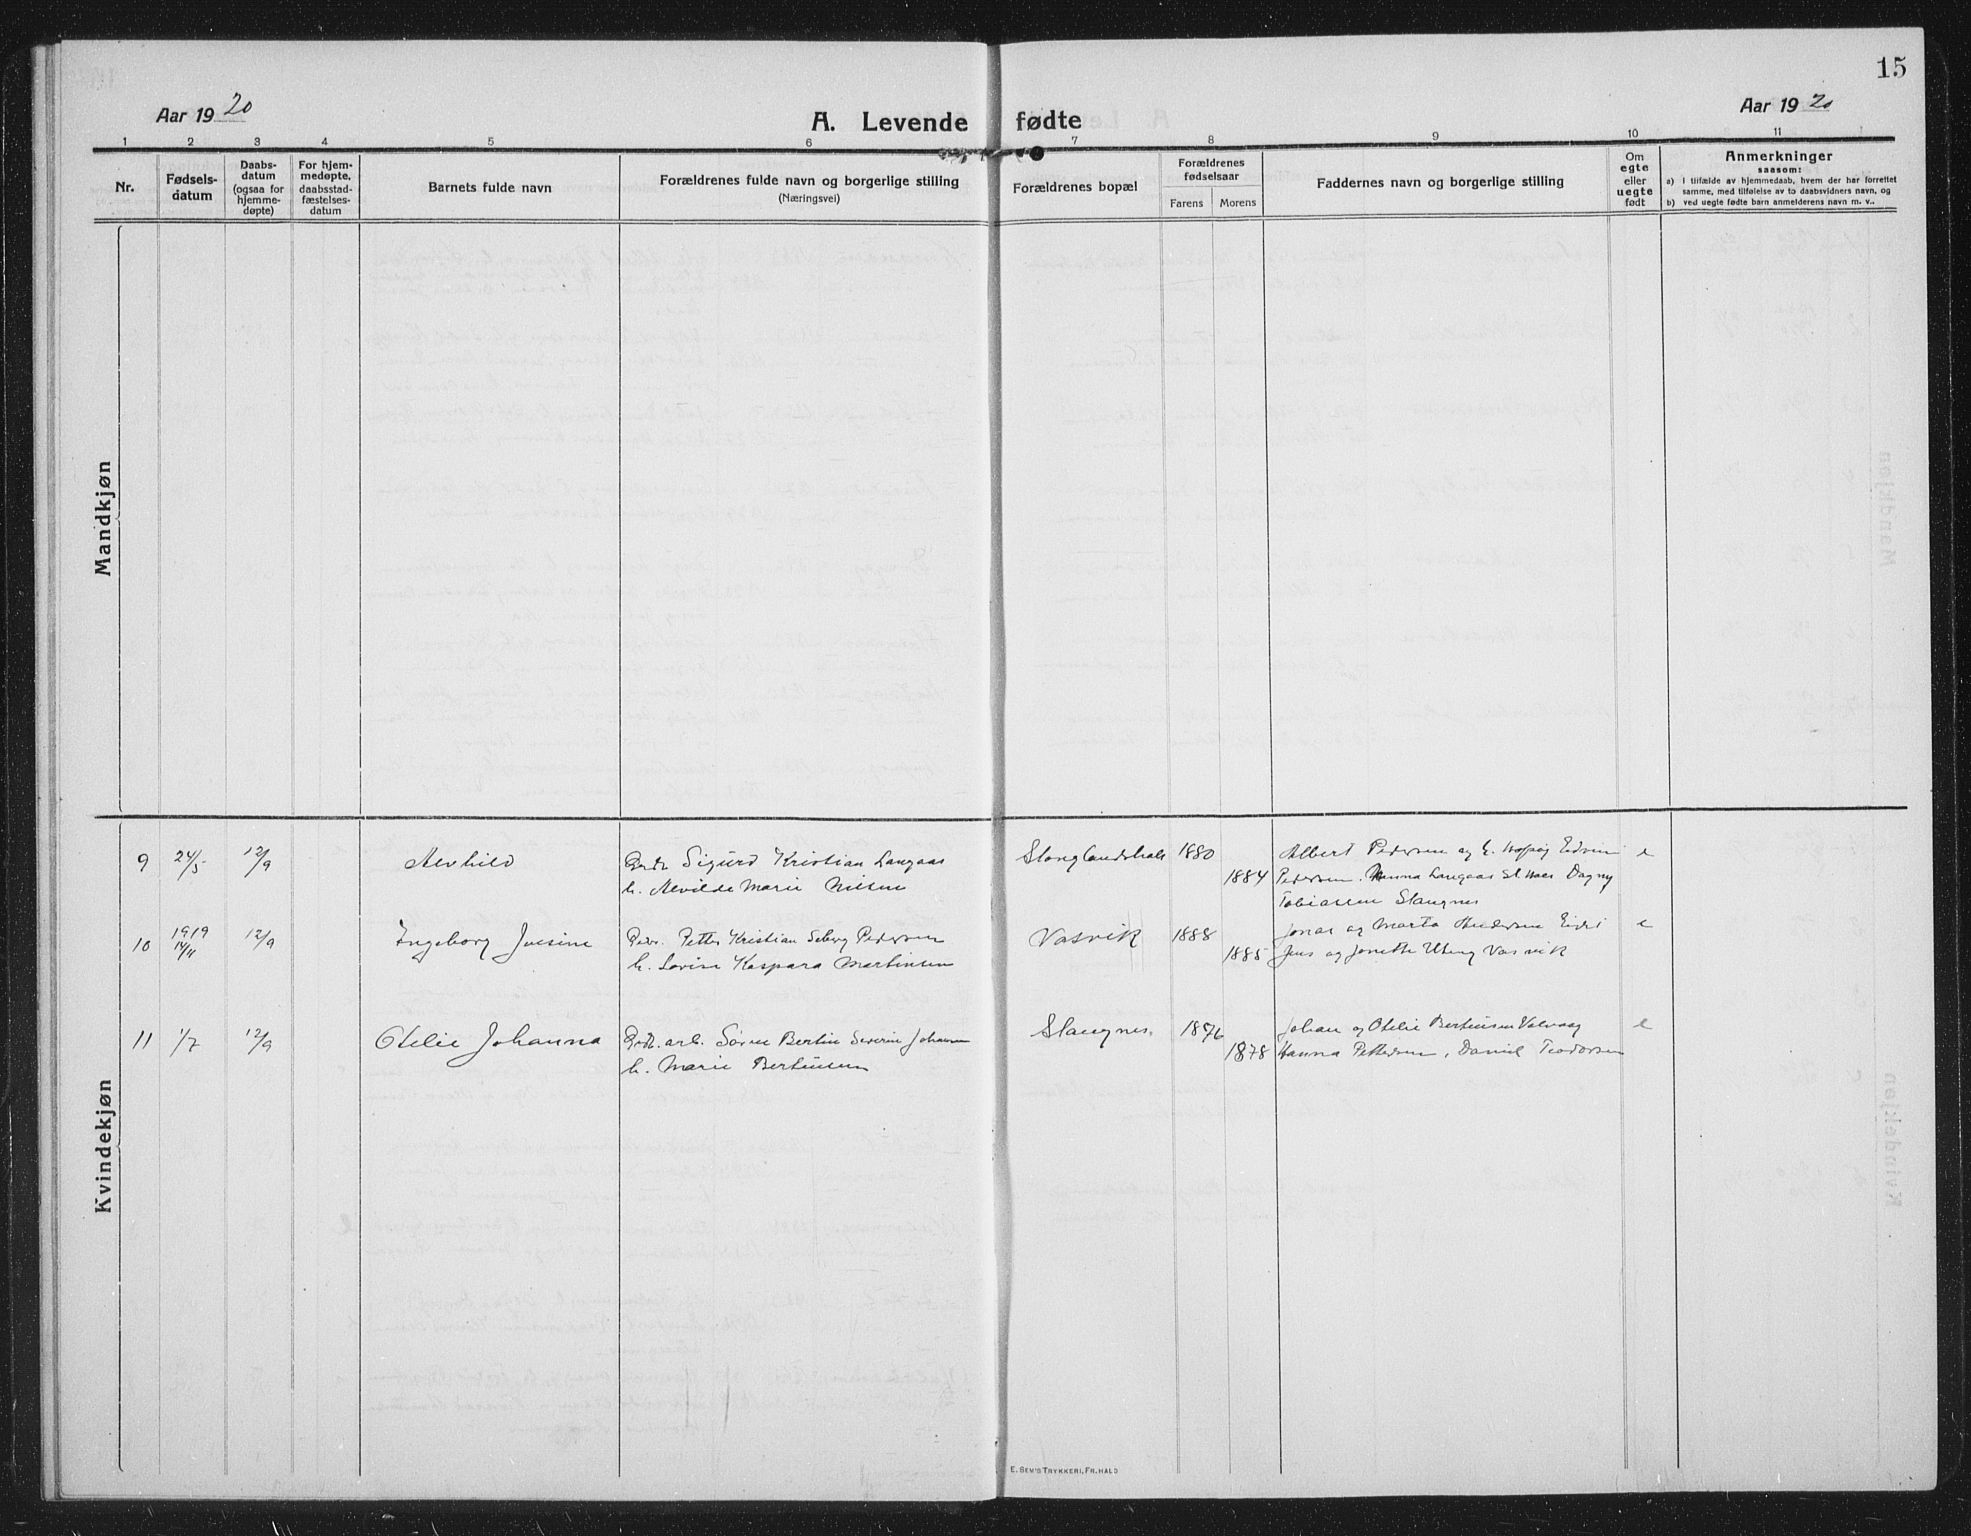 15
Aar 1920
A. Levende fødte
Aar 1920
1 2 3 4 5 6 7 8 9 10 11
Nr.
Fødsels-
datum
Daabs-
datum
(ogsaa for
hjemme-
døpte)
For hjem-
medøpte,
daabsstad-
fæstelses-
datum
Barnets fulde navn
Forældrenes fulde navn og borgerlige stilling
(Næringsvei)
Forældrenes bopæl
Forældrenes
fødselsaar
Farens Morens
Faddernes navn og borgerlige stilling
Om
egte
eller
uegte
født
Anmerkninger
saasom:
a) I tilfælde av hjemmedaab, hvem der har forrettet
samme, med tilføielse av to daabsvidners navn, og
b) ved uegte fødte barn anmelderens navn m. v..
Mandkjøn
Kvindekjøn
9 24/5 12/9 Alvhild Sigurd Kristian Langaas Slanglandshals 1880 Albert Pedersen og
h. Alvilde Marie Nilsen 1884 Pedersen. Hanna Langaas Dagny
Tobiassen Slangnes
10 1919 14/11 12/9 Ingeborg Petter Kristian Pedersen Vasvik 1888 Jonas og Marta Andersen
h. Lovise Kaspara Martinsen 1885 Jens og Jonette Vasvik
11 1/7 12/9 Otelie Johanna arb. Søren Bertin Severin Johansen Slangnes. 1876 Johan og Otelie Bertinsen
h. Marie Bertinsen 1878 Hanna Pettersen, Daniel Teodorsen
E. Sem's Trykkeri, Fr.hald